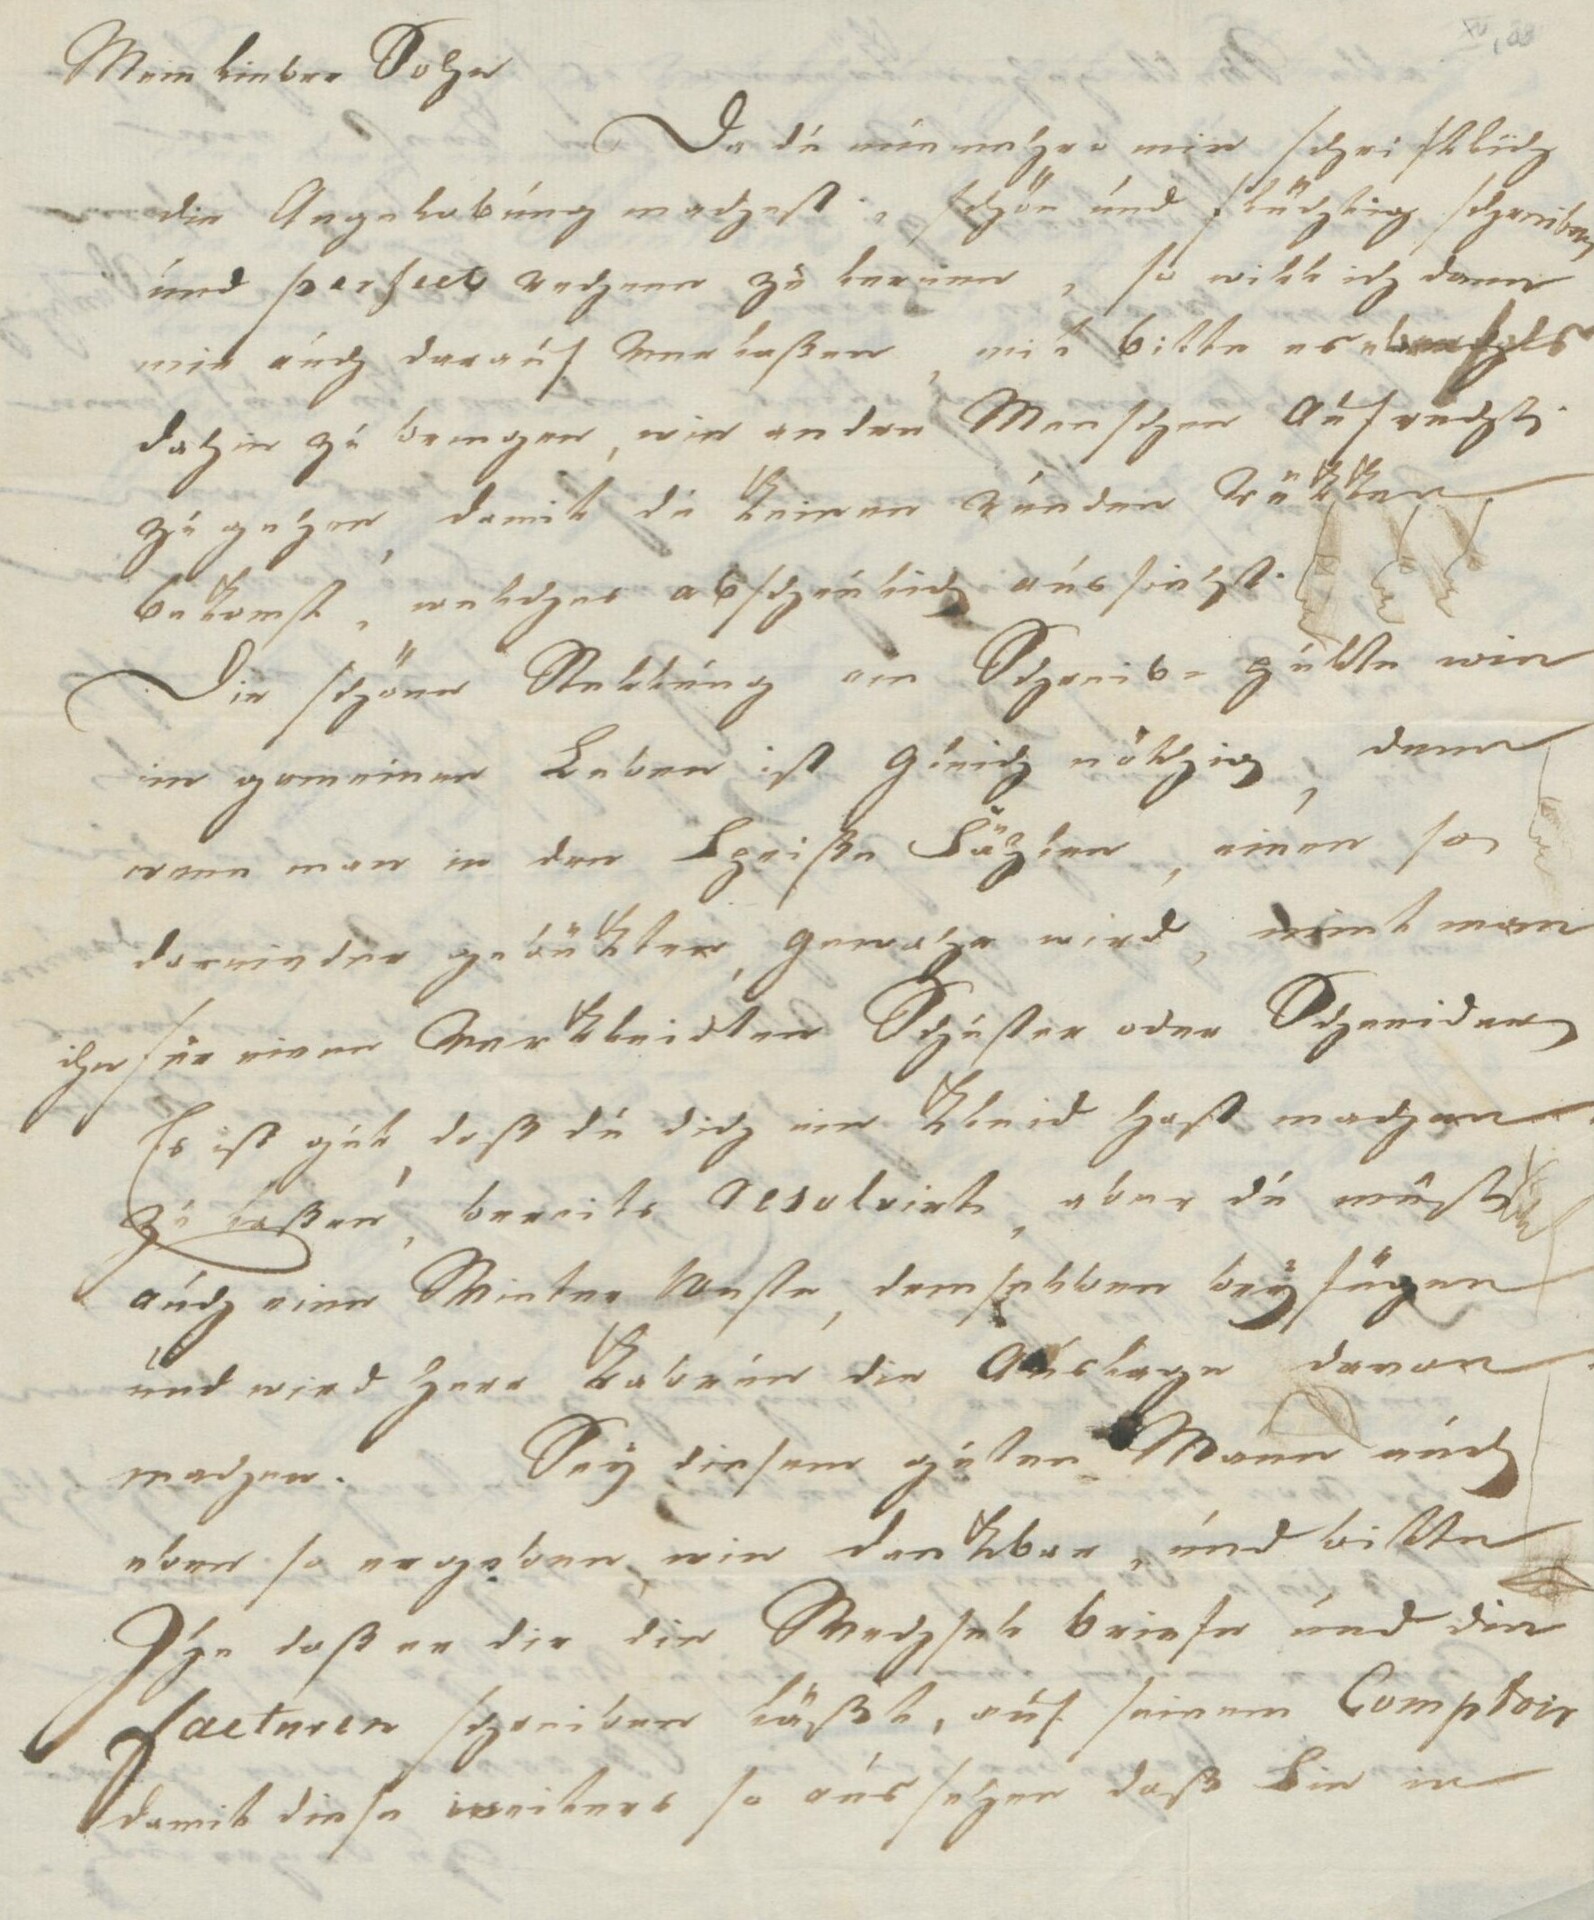 XV, 53
Mein lieber Sohn
Da du nunmehro mir schriftlich
die Angelobung machest, schön und flüchtig schreiben
und perfect rechnen zu lernen, so will ich dann
mir auch darauf verlaßen, mit bitte es ebenfals
dahin zu bringen, wie andre Menschen Aufrecht
zu gehen, damit du keinen runden Rükken
bekomst, welches abscheulich aussieht.
Die schöne Stellung am Schreibe pulte wie
im gemeinen Leben ist gleich nöthig, denn
wenn man in den Speiße Sählen, einen so
darnieder gebükten, gewahr wird, nimt man
ihn für einen verkleidten Schuster oder Schneider
Es ist gut, daß du dich ein Kleid hast machen
zu laßen, bereits resolvirt, aber du must
auch eine Winter Weste, demselben beyfügen
und wird Herr Kabrun die Auslage davon
machen. Sey diesem guten Mann auch
eben so ergeben, wie dankbar, und bitte
Ihn daß er dir die Wechsel briefe und die
facturen schreiben läßt, auf seinem Comptoir
damit diese weiters so aussehen daß Sie in